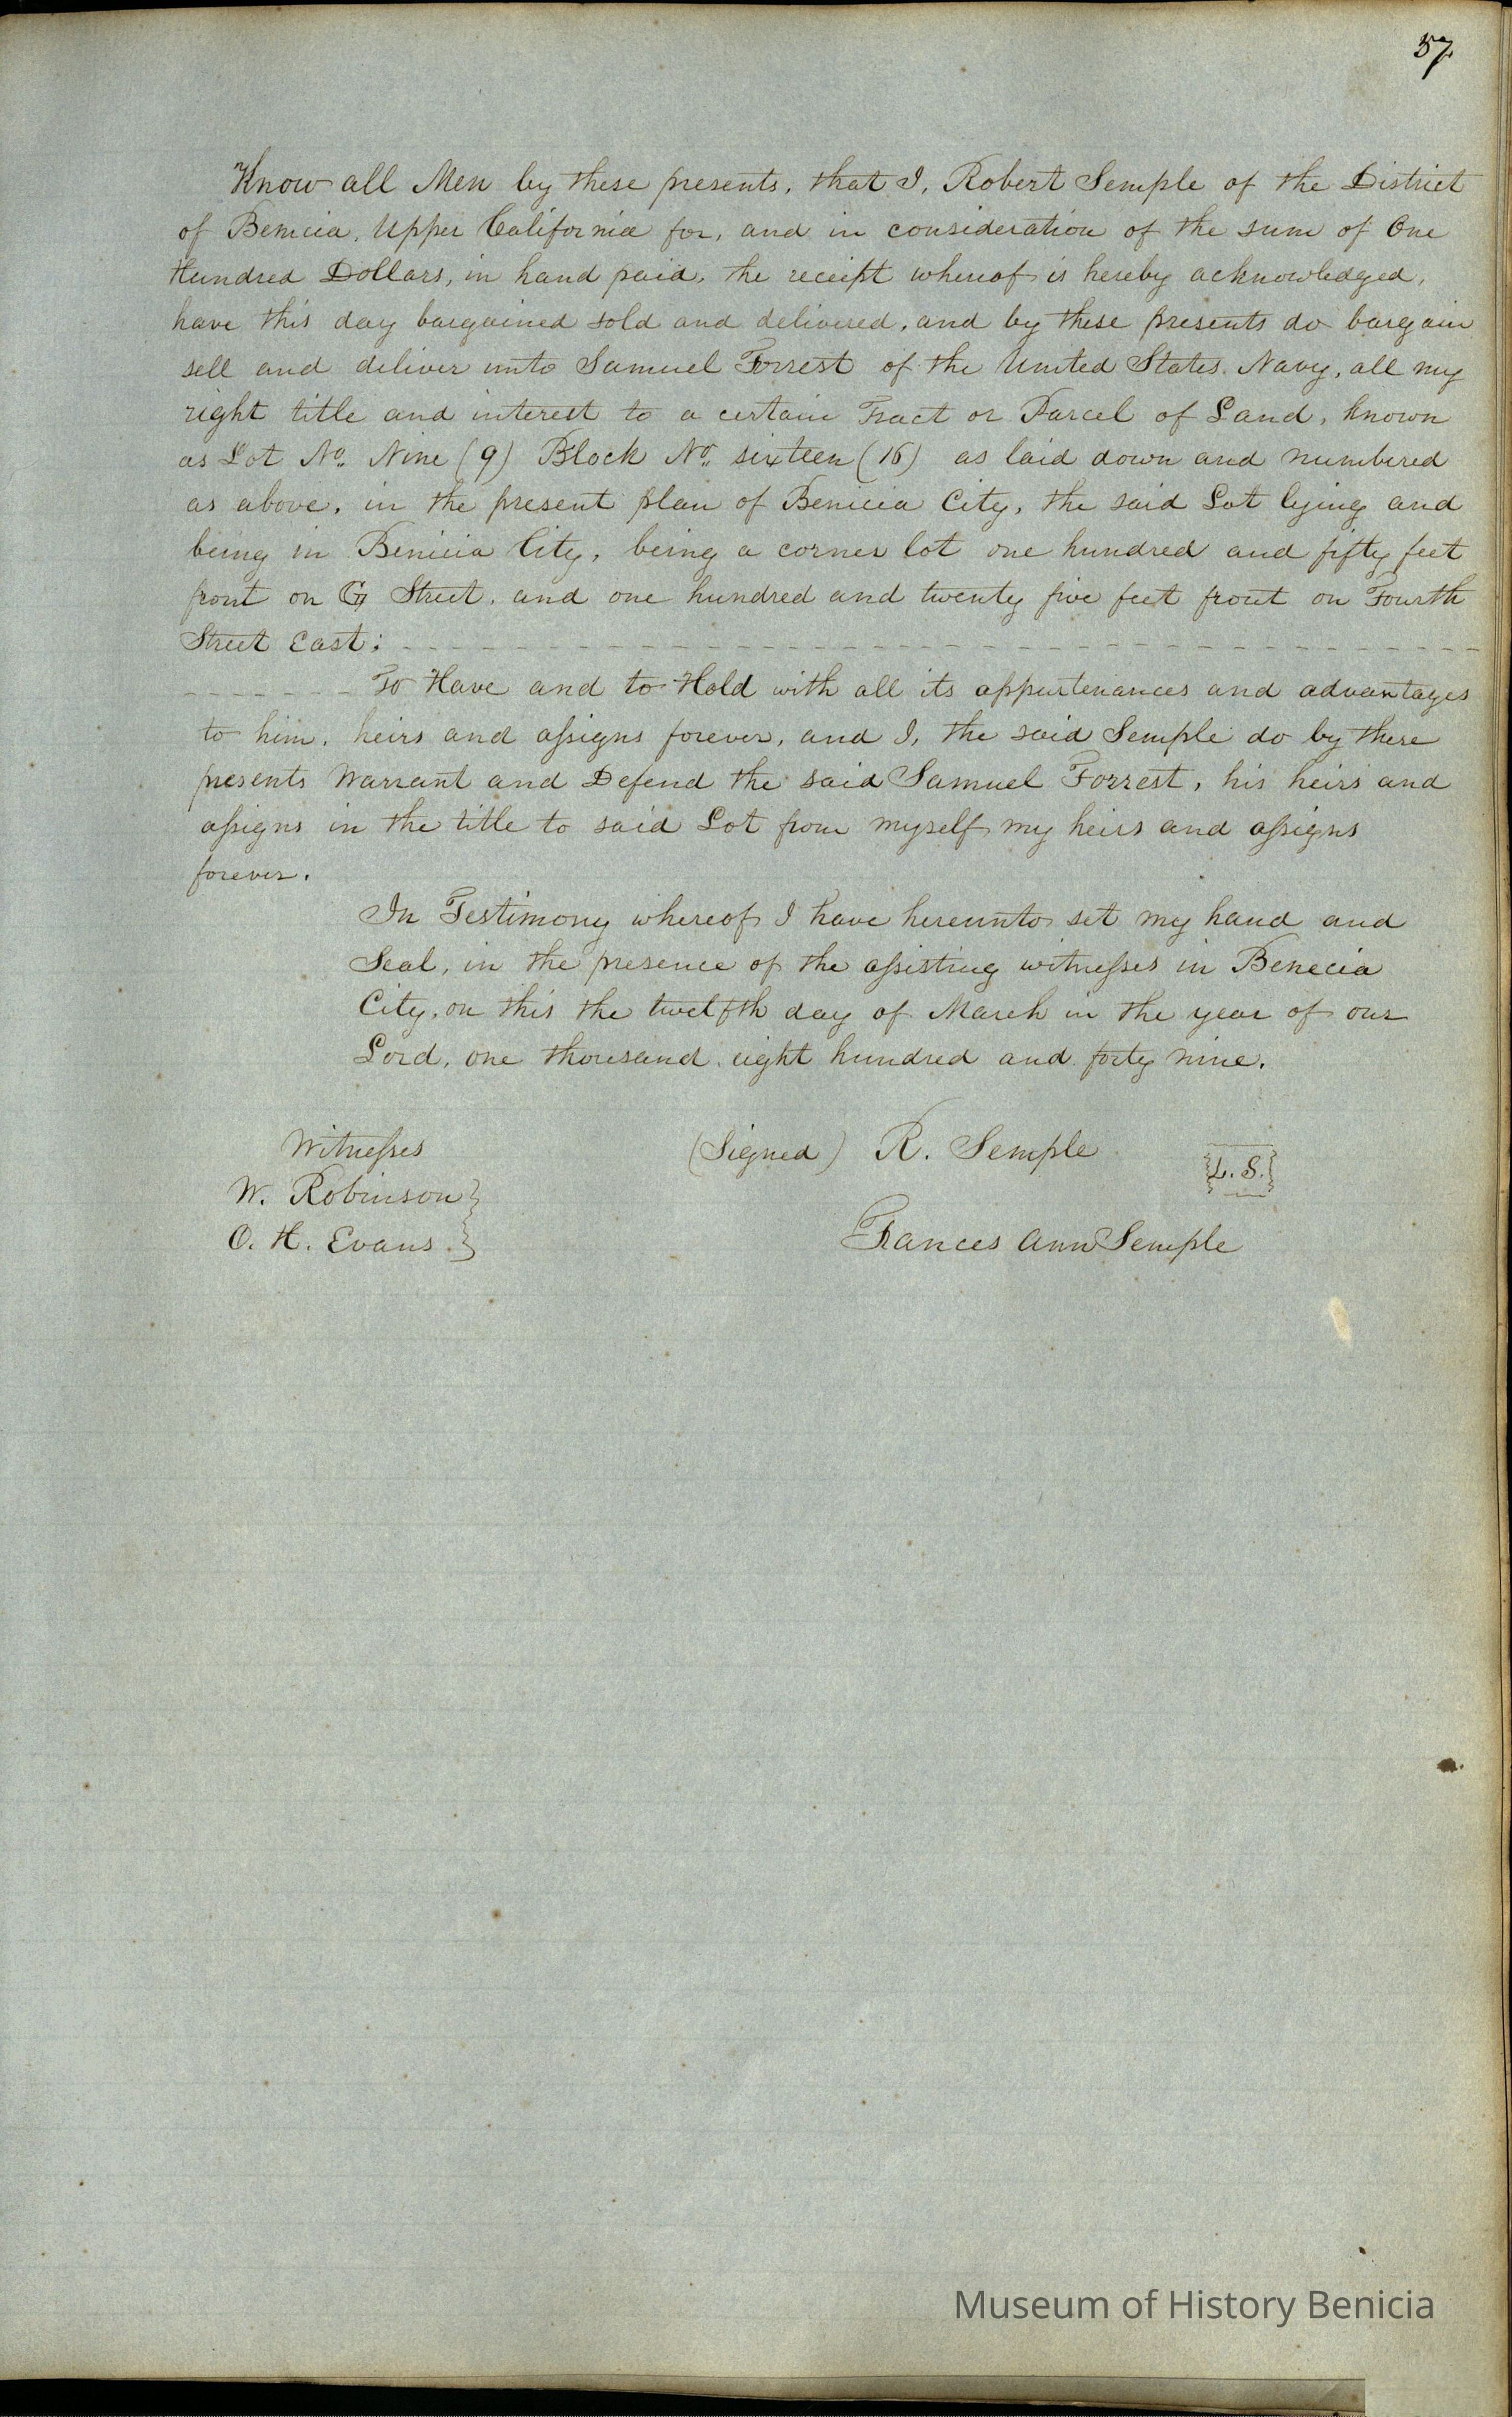 57
Know all Men by these presents, that I, Robert Semple of the District
of Benicia, Upper California for, and in consideration of the sum of One
Hundred Dollars, in hand paid, the receipt whereof is hereby acknowledged,
have this day bargained sold and delivered, and by these presents do bargain
sell and deliver unto Samuel Forrest of the United States Navy, all my
right title and interest to a certain Tract or Parcel of Land, known
as Lot No. Nine (9) Block No. sixteen (16) as laid down and numbered
as above, in the present plan of Benicia City, the said Lot lying and
being in Benicia City, being a corner lot one hundred and fifty feet
front on G Street, and one hundred and twenty five feet front on Fourth
Street East:
To Have and to Hold with all its appurtenances and advantages
to him, heirs and assigns forever, and I, the said Semple do by these
presents Warrant and Defend the said Samuel Forrest, his heirs and
assigns in the title to said Lot from myself my heirs and assigns
forever.
In Testimony whereof I have hereunto set my hand and
Seal, in the presence of the assisting witnesses in Benecia
City, on this the twelfth day of March in the year of our
Lord, one thousand eight hundred and forty nine.
Witnesses (Signed) R. Semple {L. S.}
W. Robinson }
O. H. Evans } Frances Ann Semple
Museum of History Benicia